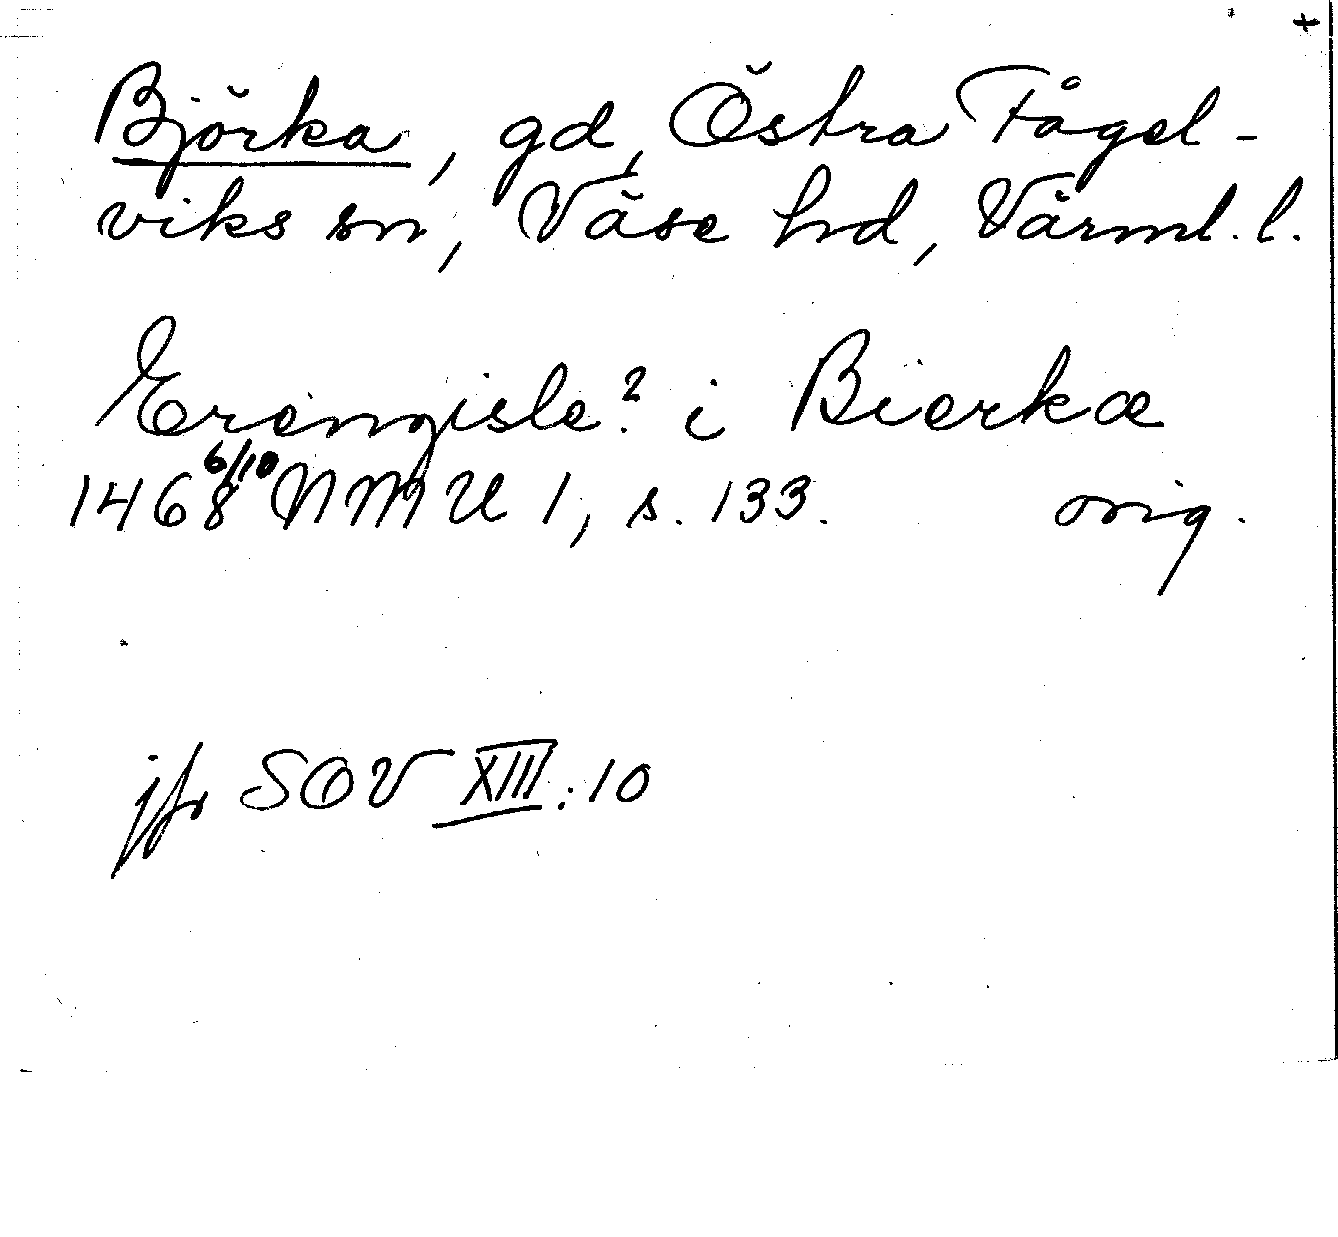 +
Björka, gd, Östra Fågel-
viks sn, Väse hd, Värml. l.
Erengisle? i Bierkæ
1468 6/10 NMU 1, s. 133. orig.
jfr SOV XIII:10